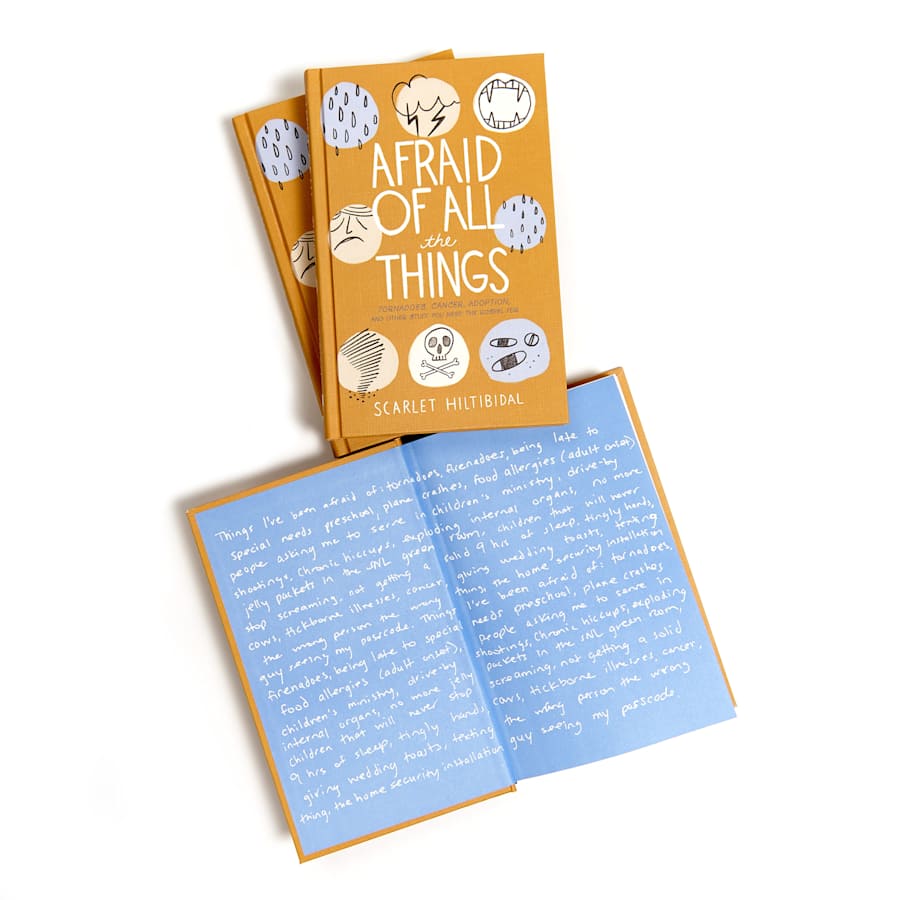 AFRAID
OF ALL
the
THINGS
TORNADOES, CANCER, ADOPTION,
AND OTHER STUFF YOU NEED THE GOSPEL FOR
SCARLET HILTIBIDAL
Things I've been afraid of: tornadoes, firenadoes, being late to
special needs preschool, plane crashes, food allergies (adult onset)
people asking me to serve in children's ministry, drive-by
shootings, Chronic hiccups, exploding internal organs, no more
jelly packets in the SNL green room, children that will never
stop screaming, not getting a solid 9 hrs of sleep, tingly hands,
cows, tickborne illnesses, cancer, giving wedding toasts, texting
the wrong person the wrong thing, the home security installation
guy seeing my passcode. Things I've been afraid of: tornadoes,
firenadoes, being late to special needs preschool, plane crashes
food allergies (adult onset), people asking me to serve in
children's ministry, drive-by shootings, Chronic hiccups, exploding
internal organs, no more jelly packets in the SNL green room,
children that will never stop screaming, not getting a solid
9 hrs of sleep, tingly hands, cows, tickborne illnesses, cancer,
giving wedding toasts, texting the wrong person the wrong
thing, the home security installation guy seeing my passcode.